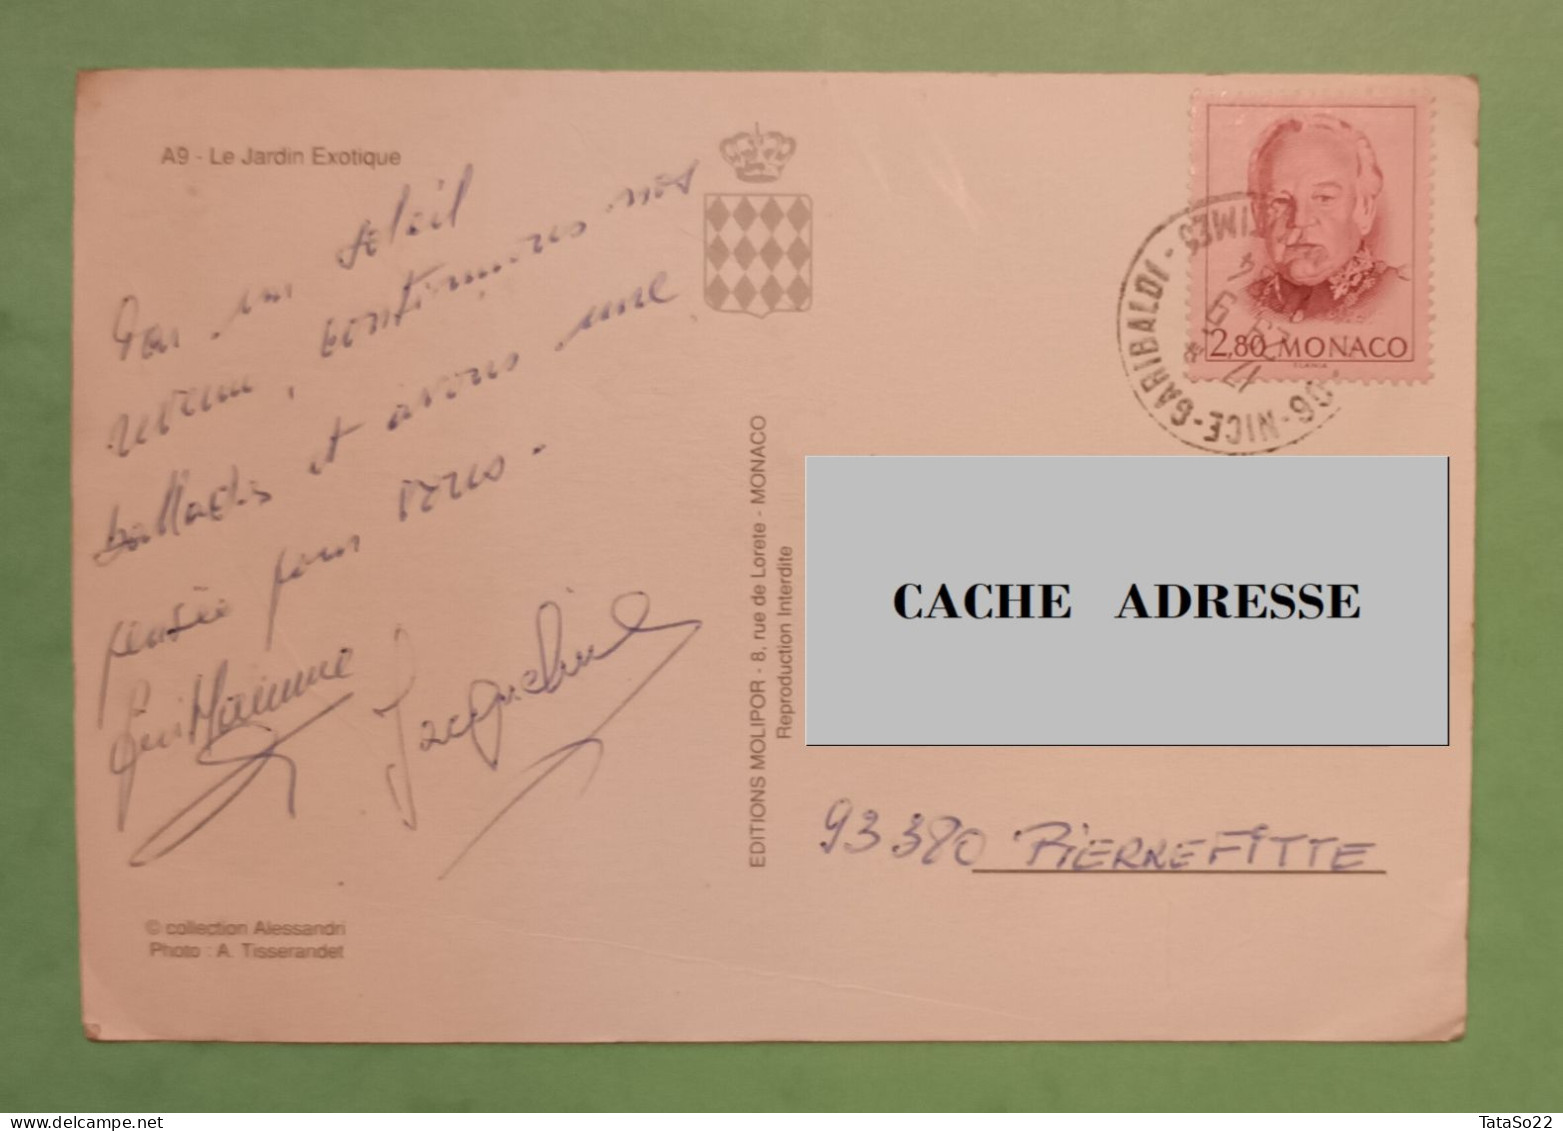 A9 - Le Jardin Exotique
Par un soleil
revenu, continuons nos
ballades et avons une
pensée pour vous -
Guillaume Jacqueline
© collection Alessandri
Photo : A. Tisserandet
EDITIONS MOLIPOR - 8, rue de Lorete - MONACO
Reproduction Interdite
2,80 MONACO
06-NICE-GARIBALDI -
CACHE ADRESSE
93380 PIERREFITTE
TataSo22